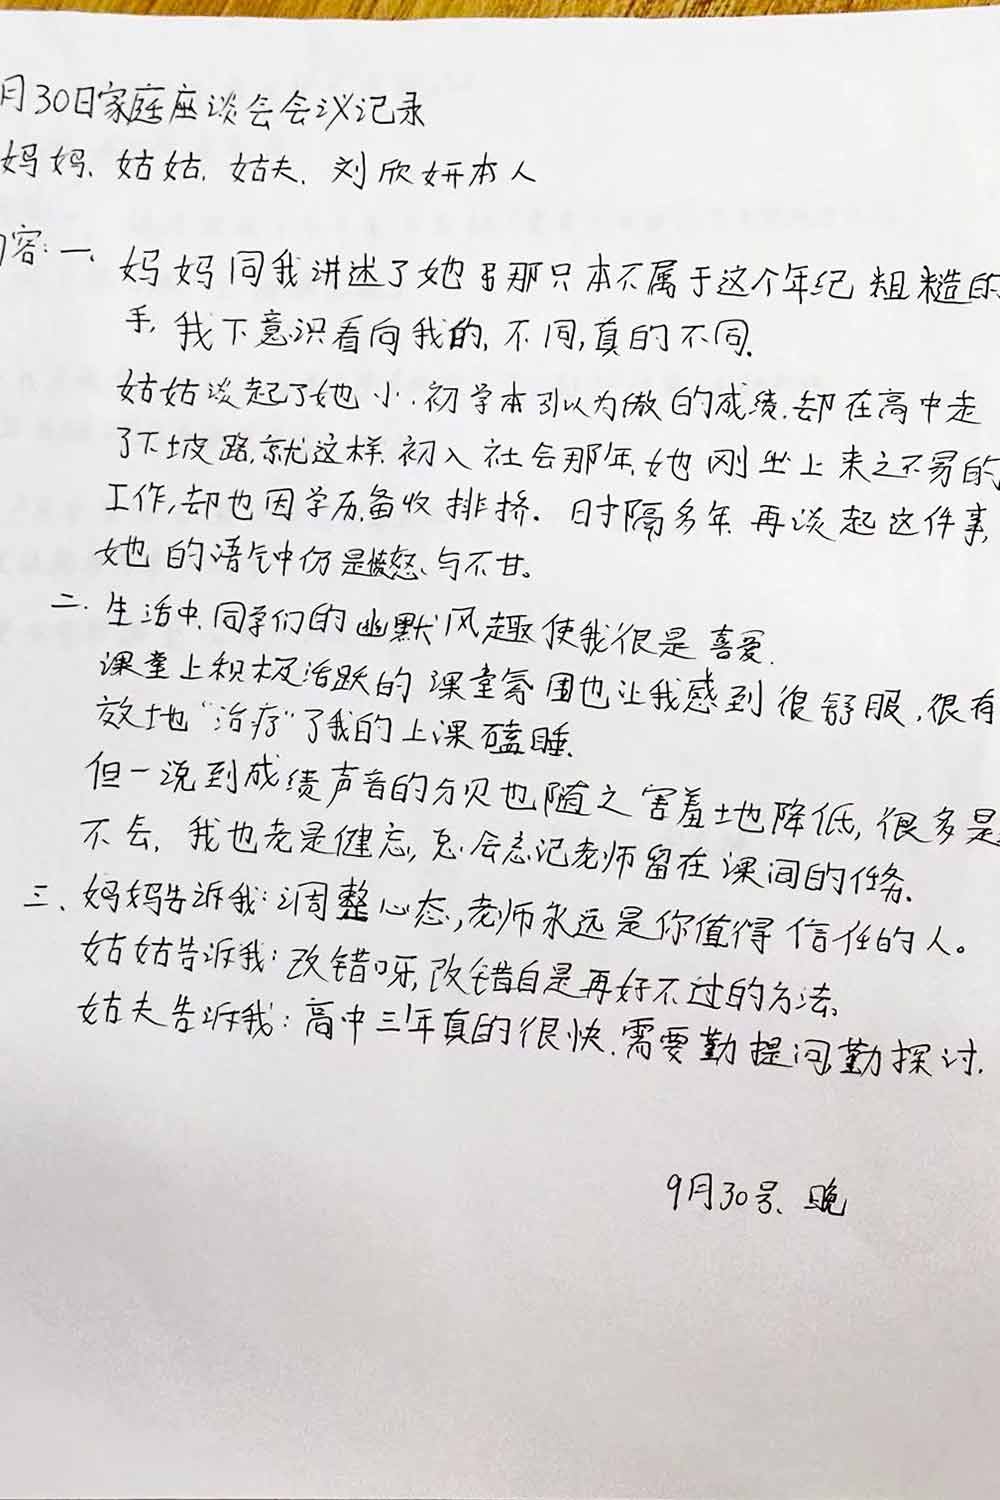 月30日家庭座谈会会议记录
妈妈、姑姑、姑夫、刘欣妍本人
内容：一、妈妈同我讲述了她那只本不属于这个年纪粗糙的
手，我下意识看向我的，不同，真的不同。
姑姑谈起了她小、初学本引以为傲的成绩，却在高中走
了下坡路，就这样，初入社会那年，她刚坐上来之不易的
工作，却也因学历备收排挤。时隔多年，再谈起这件事，
她的语气中仍是愤怒、与不甘。
二、生活中，同学们的幽默风趣使我很是喜爱。
课堂上积极活跃的课堂氛围也让我感到很舒服，很有
效地“治疗”了我的上课磕睡。
但一说到成绩声音的分贝也随之害羞地降低，很多是
不会，我也老是健忘，总会忘记老师留在课间的任务。
三、妈妈告诉我：调整心态，老师永远是你值得信任的人。
姑姑告诉我：改错呀，改错自是再好不过的方法。
姑夫告诉我：高中三年真的很快，需要勤提问，勤探讨。
9月30号、晚